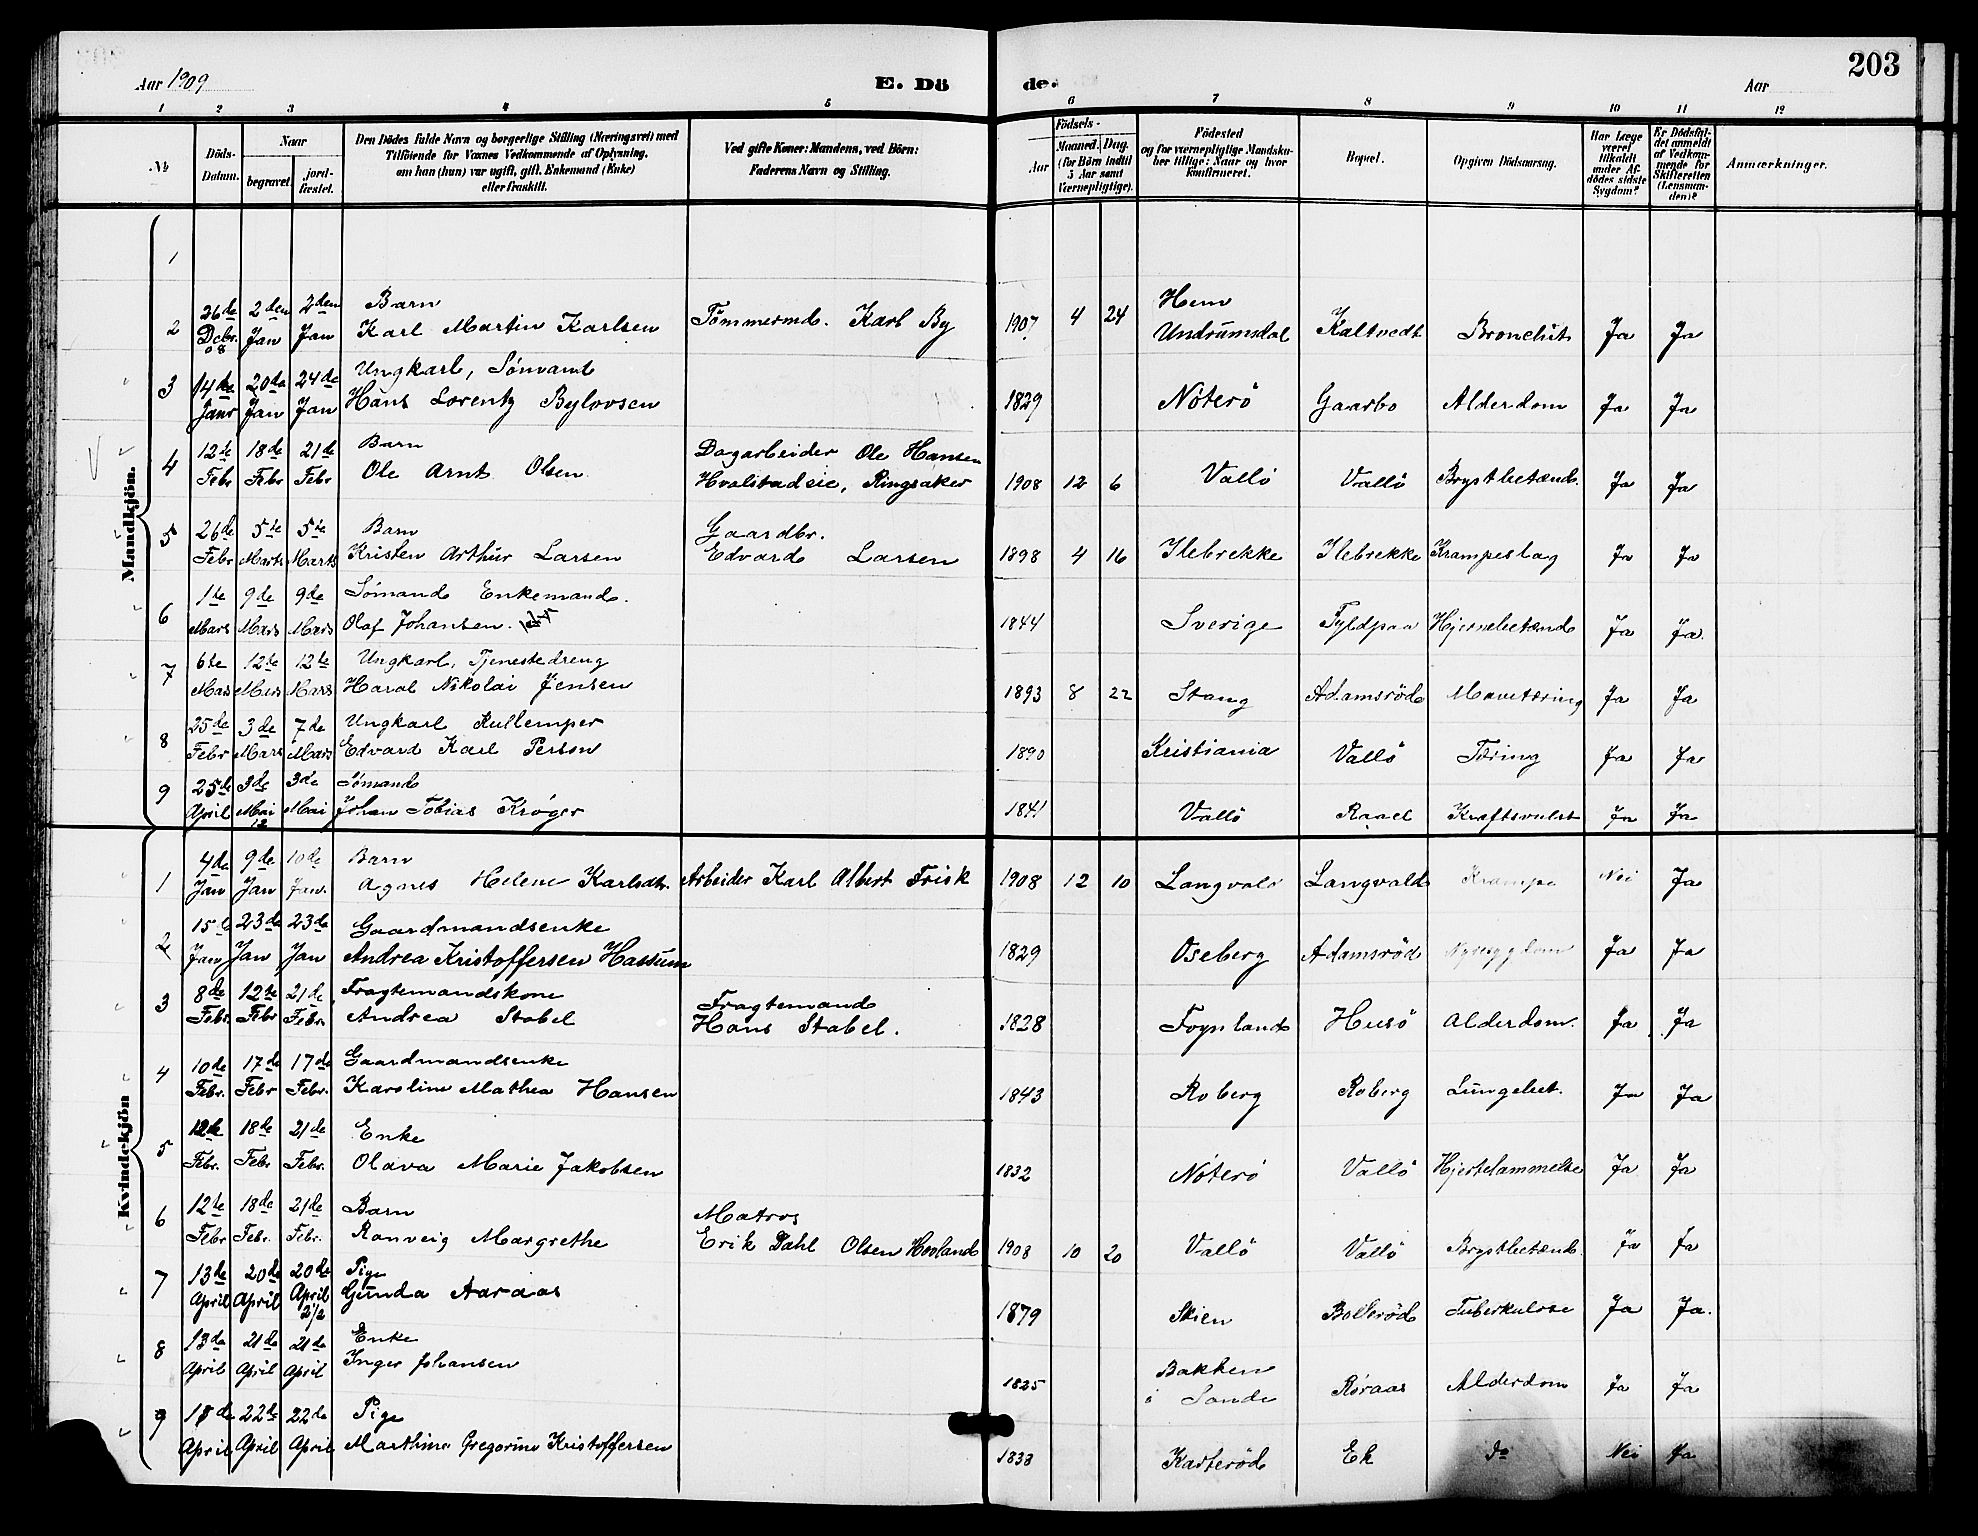 203
Aar 1909 E. Döde. Aar
1 2 3 4 5 6 7 8 9 10 11 12
No
Döds-Datum.
Naar
begravet.
jord-fæstet.
Den Dödes fulde Navn og borgerlige Stilling (Næringsvei) med
Tilföiende for Voxnes Vedkommende af Oplysning,
om han (hun) var ugift, gift, Enkemand (Enke)
eller fraskilt.
Ved gifte Koner: Mandens, ved Börn:
Faderens Navn og Stilling.
Födsels-
Aar
Maaned.
Dag.
(for Börn indtil
5 Aar samt
Værnepligtige).
Födested
og for værnepligtige Mandska-
ber tillige: Naar og hvor
konfirmeret.
Bopæl.
Opgiven Dödsaarsag.
Har Læge
været
tilkaldt
under Af-
dödes sidste
Sygdom?
Er Dödsfal-
det anmeldt
af Vedkom-
mende for
Skifteretten
(Lensman-
den)?
Anmærkninger.
Mandkjön.
1
2 26de Dcbr. 08 2den Jan 2den Jan Barn
Karl Martin Karlsen Tömmermd. Karl By 1907 4 24 Hem
Undrumsdal Kaltvedt Bronchit Ja Ja
3 14de Janr 20de Jan 24de Jan Ungkarl, Sömand
Hans Lorentz Bylovsen 1829 Nöterö Gaarbo Alderdom Ja Ja
4 12te Febr 18de Febr 21de Febr Barn
Ole Arnt Olsen Dagarbeider Ole Hansen
Hvalstadeie, Ringsaker 1908 12 6 Vallö Vallö Brystbetænd. Ja Ja
5 26de Febr 5te Marts 5te Marts Barn
Kristen Arthur Larsen Gaardbr.
Edvard Larsen 1898 4 16 Ilebrekke Ilebrekke Krampeslag Ja Ja
6 1te Mars 9de Mars 9de Mars Sömand Enkemand.
Olaf Johansen. 1844 Sverige Fyldpaa Hjernebetænd Ja Ja.
7 6te Mars 12te Mars 12te Mars Ungkarl, Tjenestedreng
Haral Nikolai Jensen 1893 8 22 Stang Adamsröd Mavetæring Ja Ja
8 25de Febr 3de Mars 7de Mars Ungkarl Kullemper
Edvard Karl Person 1890 Kristiania Vallö Tæring Ja Ja
9 25de April 3de Mai 12 3de Mai Sömand
Johan Tobias Kröger 1841 Vallö Raael Kræftsvulst Ja Ja
Kvindekjön
1 4de Jan 9de Jan 10de Jan. Barn
Agnes Helene Karlsdtr. Arbeider Karl Albert Frisk 1908 12 10 Langvald Langvald Krampe Nei Ja
2 15de Jan 23de Jan 23de Jan Gaardmandsenke
Andrea Kristoffersen Hassum 1829 Oseberg Adamsröd Nyresygdom Ja Ja
3 8de Febr. 12te Febr 21de Febr. Fragtemandskone
Andrea Stabel Fragtemand
Hans Stabel. 1828 Foynland Husö Alderdom. Ja Ja
4 10de Febr. 17de Febr 17de Febr. Gaardmandsenke
Karoline Mathea Hansen 1843 Roberg Roberg Lungebet. Ja Ja
5 12te Febr. 18de Febr 21de Febr. Enke
Olava Marie Jakobsen 1832 Nöterö Vallö Hjertelammelse Ja Ja
6 12te Febr 18de Febr. 21de Febr. Barn
Ranveig Margrethe Matros
Erik Dahl Olsen Hovland 1908 10 20 Vallö Vallö Brystbetænd. Ja Ja
7 13de April 20de April 20de April 2½ Pige
Gunda Aaraas 1879 Skien Bolleröd Tuberkulose Ja Ja.
8 13de April 21de April 21de April Enke
Inger Johansen 1825 Bakken
i Sande Röraas Alderdom Ja Ja
9 15de April 22de April 22de April Pige
Marthine Gregorine Kristoffersen 1833 Karteröd Ek do Nei Ja